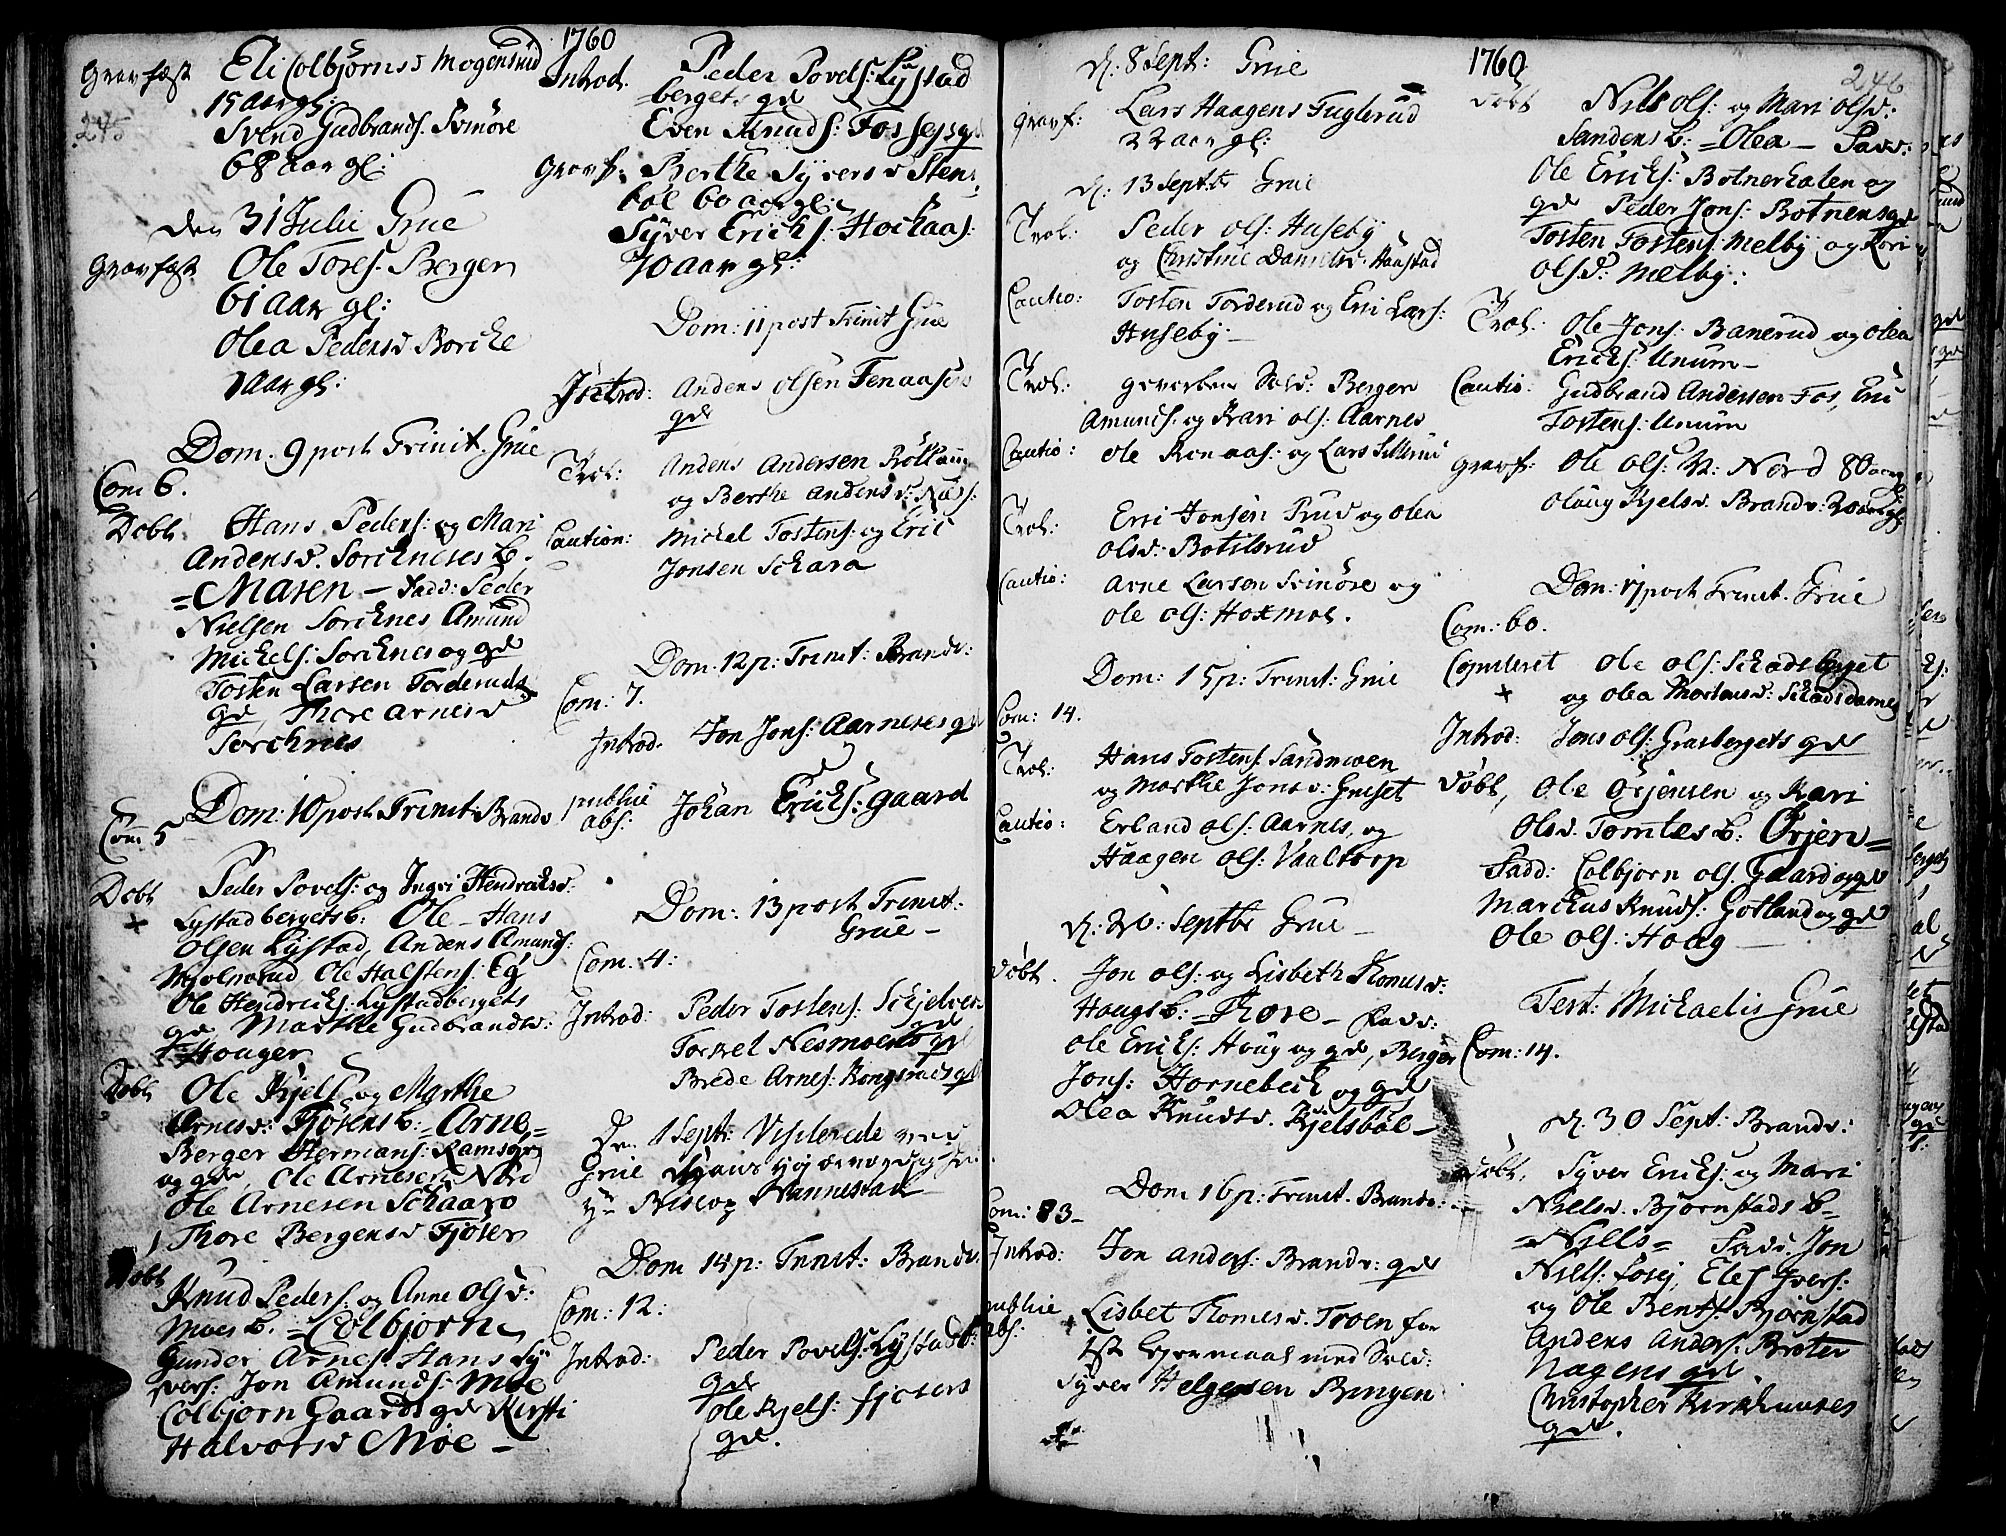 1760
245
Gravfæst Eli Colbjørnsd Mogensrud
15 aar gl:
Svend Gudbrands. Svinøre
68 aar gl:
Den 31 Julii Grue
Gravfæst Ole Tores: Bergen
61 aar gl:
Olea Pedersd Borche
1 aar gl:
Dom. 9 post Trinit. Grue
Com 6.
Døbt Hans Peders: og Mari
Andersd. Sorchneses b.
= Maren – Fadd: Peder
Nielsen Sorchnes, Amund
Michels: Sorchnes og gd
Tosten Larsen Torderuds
gd, Thore Arnesd
Sorchnes
Dom: 10 post Trinit. Brandv
Com 5
Døbt Peder Povels: og Ingri Hendrichsd:
+ Lystadbergets b: Ole – Hans
Olsen Lystad, Anders Amunds:
Ole Halstens: Eg
Ole Hendrichs: Lystadbergets
gd Marthe Gudbrandsd:
Houger
Døbt Ole Kjels: og Marthe
Arnesd: Fjøsens b: = Arne =
Berger Hermans: Ramsøye
og gd, Ole Arnesen Nord
Ole Arnesen Schaaro
Thore Bergersd Fjøsen
Døbt
Knud Peders: og Anne Olsd:
Moes b. = Colbjørn
Gunder Arnes. Hans Sy
vers: Jon Amunds: Moe
Colbjørn Gaards gd Kirsti
Halvorsd Moe –
Introd. Peder Povels: Lystad
bergets gd
Even Knuds: Fossejs gd
Gravf: Berthe Syversd Stens
bøl 60 aar gl:
Syver Erichs: Hochaas:
70 aar gl:
Dom: 11 post Trinit Grue
Introd: Anders Olsen Tenaasens
gd
Trol: Anders Andersen
og Berthe Andersd: Næs:
Caution: Michel Tostens: og Eric
Jonsen Schara
Dom. 12 p: Trinit: Brandv:
Com: 7.
Introd. Jon Jons: Aarneses gd
publice Johan Erichs: Gaard
abs:
Dom: 13 post Trinit:
Grue –
Com. 4:
Introd: Peder Tostens: Schjelver
gd
Torkel Nesmoens gd
Brede Arnes: Kongsrads gd
Dn. 1 Sept: Visiterede
Grue
Hr Biscop Nannestad
Dom 14 p: Trinit: Brandv.
Com: 12:
Introd: Peder Povels: Lystadb:
gd
Ole Kjels: Fjøsens
gd.
d. 8 Sept: Grue
Gravf: Lars Haagens Fuglerud
22 aar gl:
d. 13 Septbr Grue
Trol: Peder Ols: Huseby
og Christine Danielsd Haastad
Cautio: Tosten Torderud og Eri Lars:
Huseby –
Trol: Gevorben Sold: Berger
Amunds. og Kari Ols: Aarnes
Cautio: Ole og Lars
Trol: Eri Jonsen Prud og Olea
Olsd: Botilsrud
Cautio: Arne Larsen Svinøre og
Ole Ols: Hoxmoe.
Dom: 15 p: Trinit: Grue
Com: 14.
Trol: Hans Tostens Sandmoen
og Marthe Jonsd: Guset
Cautio: Erland Ols: Aarnes, og
Haagen Ols: Vaaltorp
d: 20: Septbr Grue –
Døbt. Jon Ols: og Lisbeth Thomesd:
Hougs b: = Thore – Fadd:
Ole Erichs: Houg og gd, Berger
Jons: Hornebech og gd
Olea Knudsd. Kjelsbøl –
Dom 16 p: Trinit. Brandv:
Com: 83 –
Introd: Jon Anders: Brandv: gd
publice Lisbet Thomesd. Troen for
abs: 1st Lejermaal med Sold:
Syver Helgesen Bingen
1760
246
Døbt Nils Ols: og Mari Olsd:
Sandens b: = Olea – Fadd:
Ole Erichs: Botnerhalen og
gd Peder Jons: Botnens gd
Tosten Tostens: Melby og Kari
Olsd: Melby:
Trol: Ole Jons: Banerud og Olea
Erichs: Unum –
Cautio: Gudbrand Andersen Fos, Eri
Tostens: Unum
Gravf: Ole Ols: Nord 80 aar gl
Olaug Kjelsd. Brandv: 20 aar gl
Dom: 17 post Trinit. Grue
Com: 60.
Copuleret Ole Ols: Schadsberget
+ og Olea Thostensd: Schadsdamen
Introd: Jens Ols: Grasbergets gd
Døbt, Ole Ørjensen og Kari
Olsd. Tomtes b: Ørjen =
Fadd: Colbjørn Ols: Gaard og gd
Marckus Knuds: Gotland og gd
Ole Ols: Hoag –
Fest: Michaelis Grue
Com: 14.
d. 30 Sept: Brandv:
Døbt. Syver Erichs: og Mari
Nielsd. Bjørnstads b –
= Niels = Fadd. Jon
Niels: Fosej, Ele Syvers:
og Ole Bents: Bjørnstad
Anders Anders: Broter
hagens gd.
Christopher Kirkhuuses
gd.